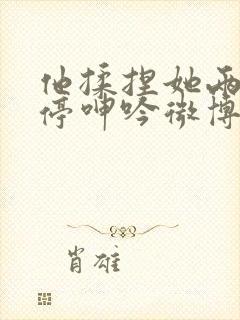 他揉捏她两
停呻吟微博
肖雄